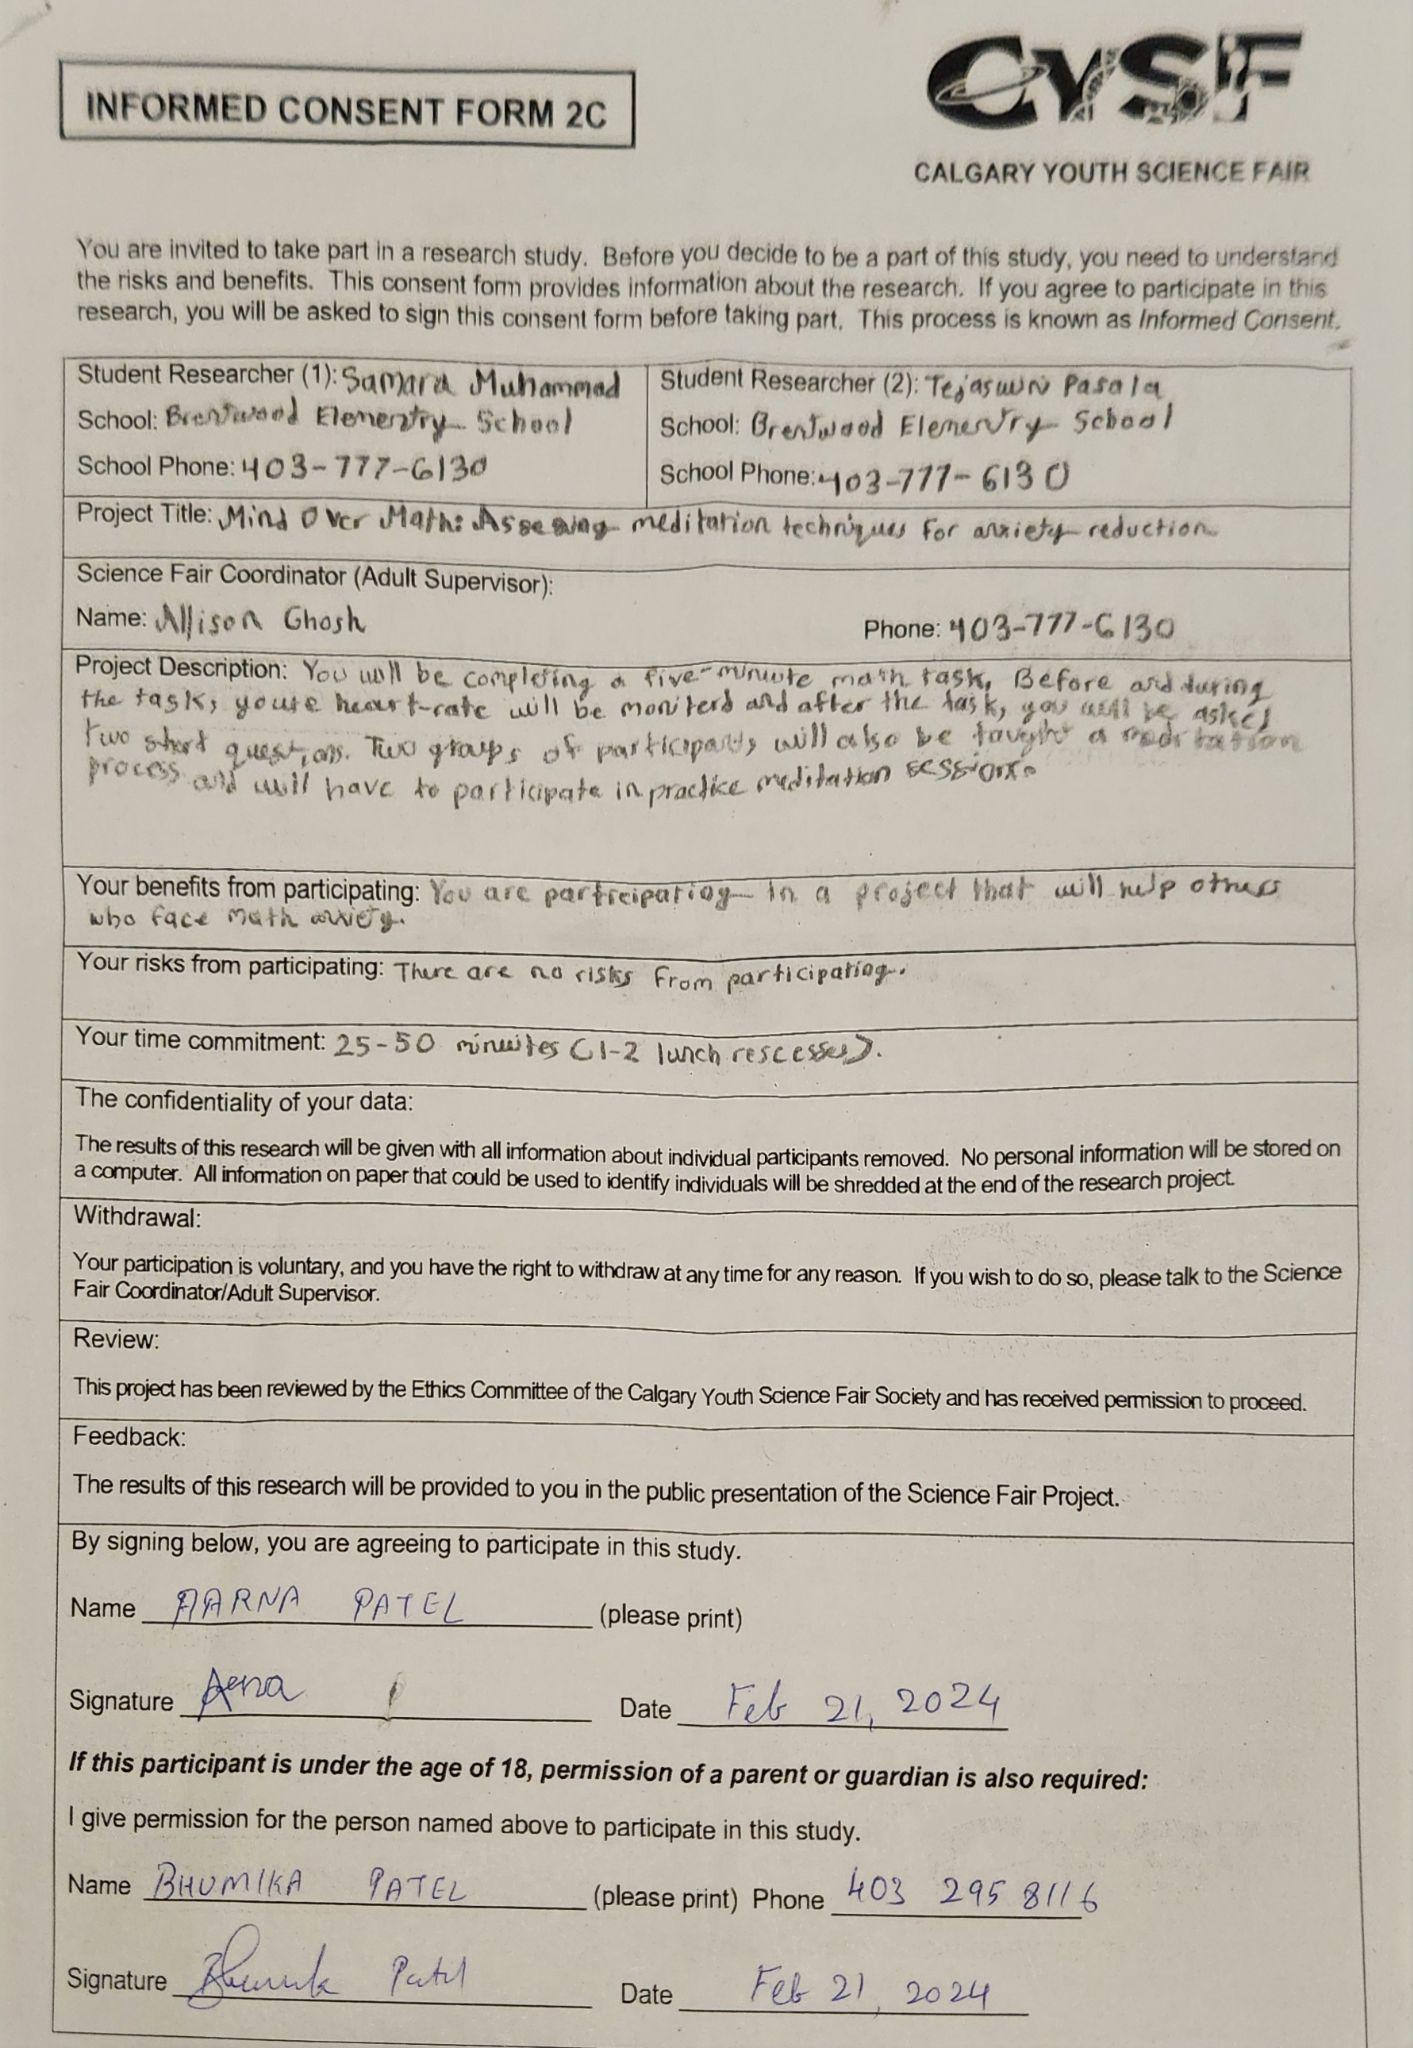 INFORMED CONSENT FORM 2C
CYSF
CALGARY YOUTH SCIENCE FAIR
You are invited to take part in a research study. Before you decide to be a part of this study, you need to understand
the risks and benefits. This consent form provides information about the research. If you agree to participate in this
research, you will be asked to sign this consent form before taking part. This process is known as Informed Consent.
Student Researcher (1): Samara Muhammad
School: Brentwood Elementry School
School Phone: 403-777-6130
Student Researcher (2): Tejaswini Pasala
School: Brentwood Elementry School
School Phone: 403-777-6130
Project Title: Mind Over Math: Assessing meditation techniques for anxiety reduction.
Science Fair Coordinator (Adult Supervisor):
Name: Allison Ghosh Phone: 403-777-6130
Project Description: You will be completing a five-minute math task. Before and during
the task, youre heart-rate will be moniterd and after the task, you will be asked
two short questions. Two groups of participants will also be taught a meditation
process and will have to participate in practice meditation sessions.
Your benefits from participating: You are participating in a project that will help others
who face math anxiety.
Your risks from participating: There are no risks from participating.
Your time commitment: 25-50 minuites (1-2 lunch rescesses).
The confidentiality of your data:
The results of this research will be given with all information about individual participants removed. No personal information will be stored on
a computer. All information on paper that could be used to identify individuals will be shredded at the end of the research project.
Withdrawal:
Your participation is voluntary, and you have the right to withdraw at any time for any reason. If you wish to do so, please talk to the Science
Fair Coordinator/Adult Supervisor.
Review:
This project has been reviewed by the Ethics Committee of the Calgary Youth Science Fair Society and has received permission to proceed.
Feedback:
The results of this research will be provided to you in the public presentation of the Science Fair Project.
By signing below, you are agreeing to participate in this study.
Name AARNA PATEL (please print)
Signature Date Feb 21, 2024
If this participant is under the age of 18, permission of a parent or guardian is also required:
I give permission for the person named above to participate in this study.
Name BHUMIKA PATEL (please print) Phone 403 295 8116
Signature Patel Date Feb 21, 2024